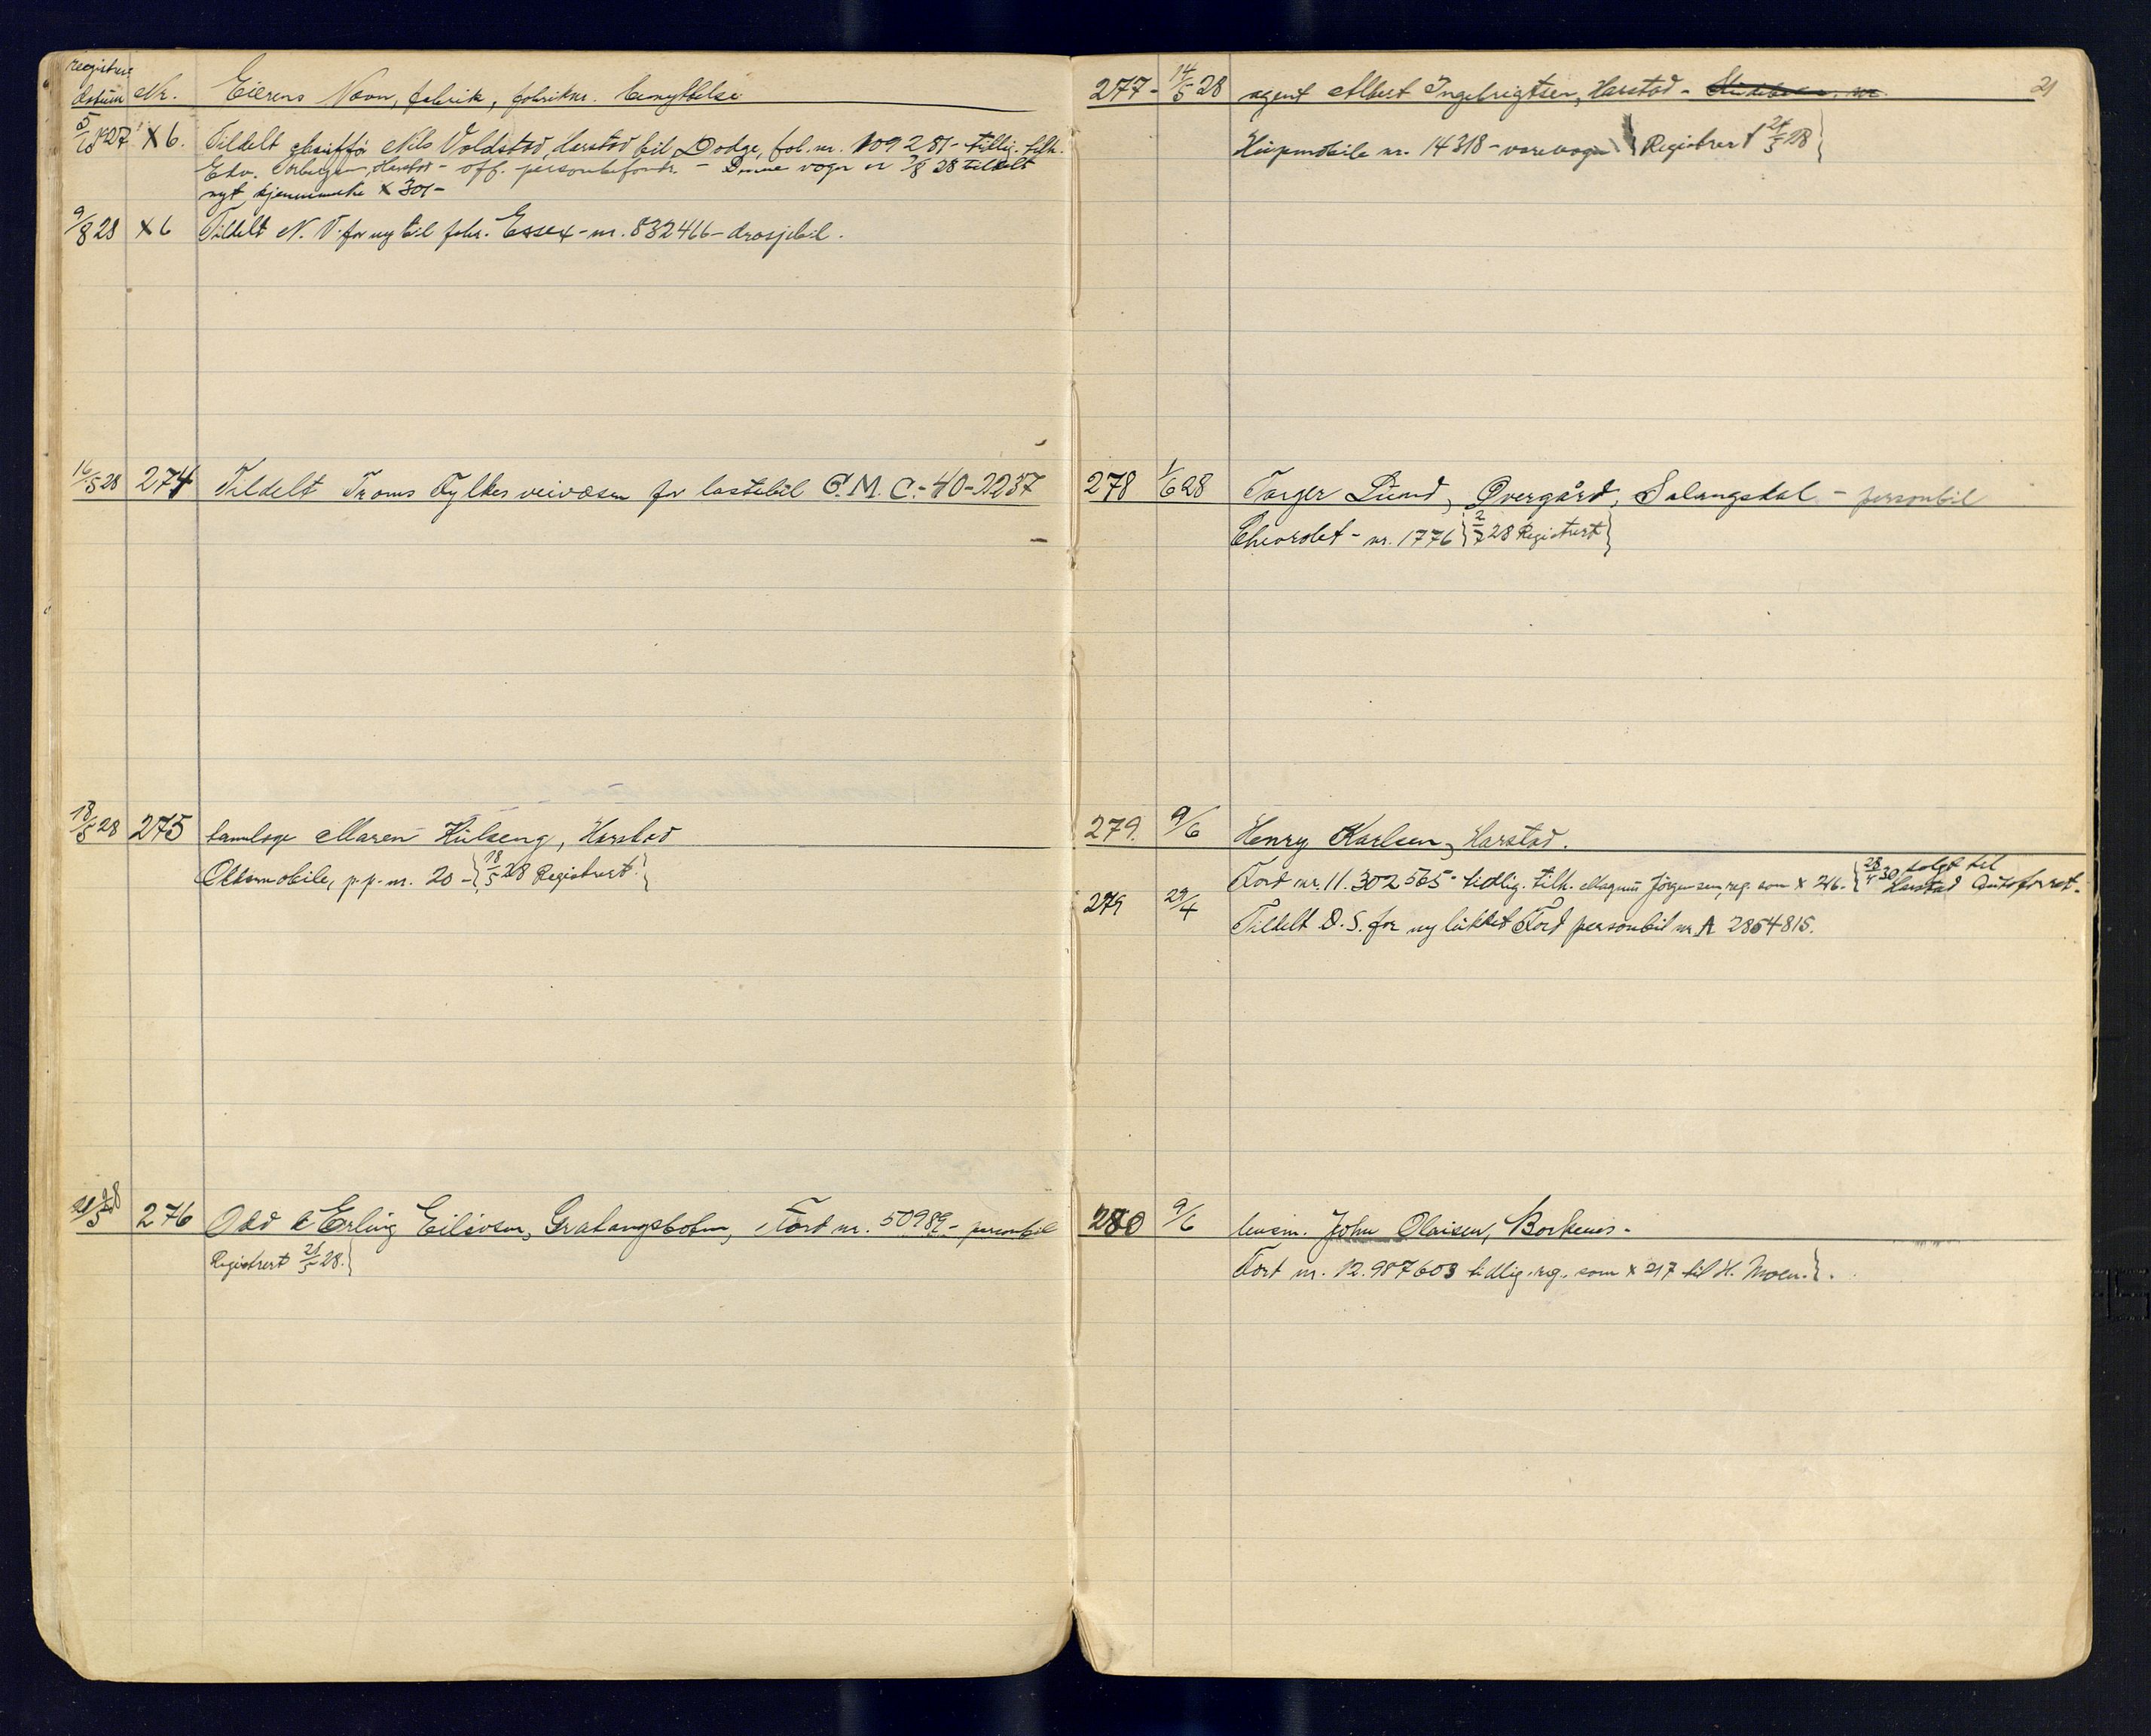 registrer.
datum Nr. Eierens Navn, fabrik, fabriknr. benyttelse
5/10 1927 X 6. Tildelt chauffør Nils Voldstad, Harstad bil Dodge, fab.nr. 109281 - tidlig. tilh.
Edv. Harstad - off. personbefordr. - Denne vogn er 7/8 28 tildelt
nyt kjennemerke X 301-
9/8 28 X 6 Tildelt N. V. for ny bil fabr. Essex - nr. 832466 - drosjebil.
16/5 28 274 Tildelt Troms Fylkes veivæsen for lastebil G.M.C. - 40-2237
18/5 28 275 tannlæge Maren Hulseng, Harstad
Oldsmobile, p.p. nr. 20 - { 18/5 28 Registrert }
21/5 28 276 Odd & Erling Eilivsen, Gratangsbotn, Ford nr. 50989 - personbil
Registrert 21/5 28. }
21
277 - 14/5 28 agent Albert Ingebrigtsen, Harstad - nr.
Hupmobile nr. 14318 - varevogn { Registrert 24/5 28 }
278 1/6 28 Torger Lund, Øvergård, Salangsdal - personbil
Chevrolet - nr. 1776 { 2/7 28 Registrert }
279. 9/6 Henry Karlsen, Harstad.
Ford nr. 11.302565 - tidlig. tilh. Magnus Jörgensen, reg. som X 246. { 28/4 30 solgt til
Harstad Autoforret.
279 29/4 Tildelt O. S. for ny lukket Ford personbil nr. A 2854815.
280 9/6 lensm. John Olaisen, Borkenes -
Ford nr. 12.987603 tidlig. reg. som X 217 til H. Moen. } .